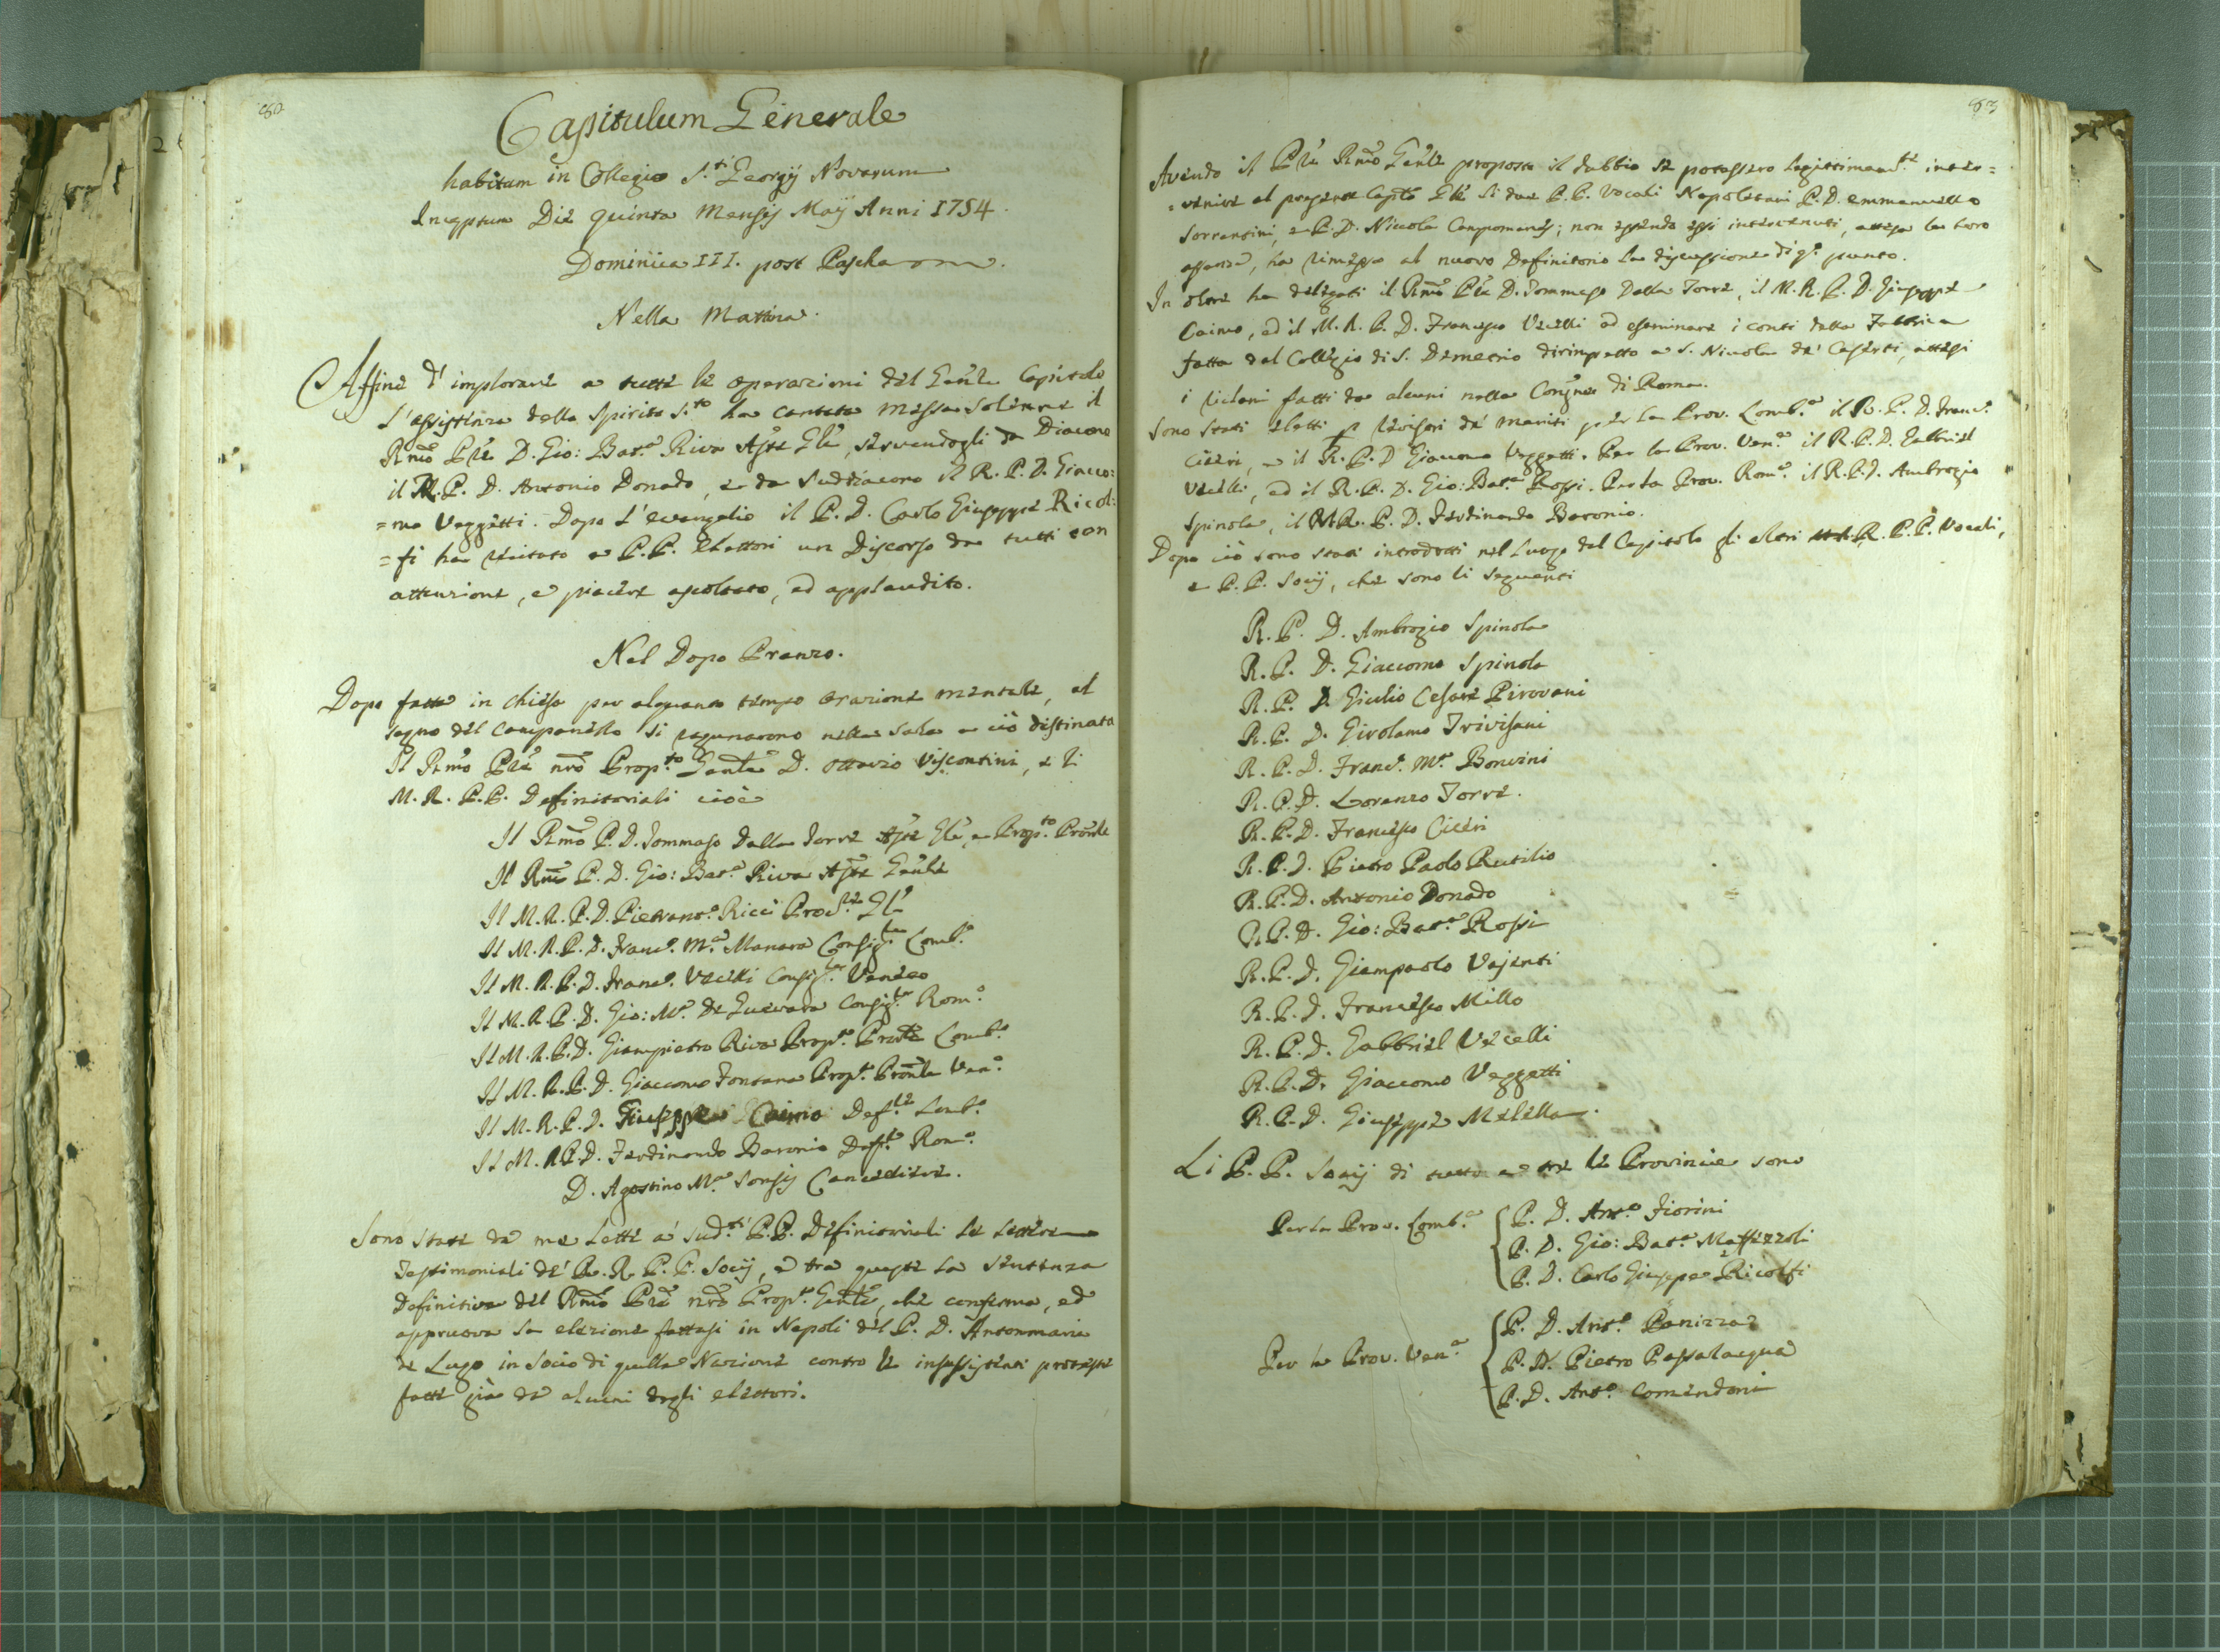 82
Capitulum Generale
habitum in Collegio S.ti Georgij Novarum
Inceptum Die quinta Mensis Maij Anni 1754.
Dominica III. post Pascha
Nella Mattina.
Affine d'implorare a tutte le operazioni del Gen̄le Capitolo
l'assistenza dello Spirito S.to ha cantata Messa solenne il
Rm̄o Pr̄e D. Gio: Bat.a Riva Ass̄te Gl̄e, servendogli da Diacono
il M.R.P. D. Antonio Donado, e da Suddiacono il R. P. D. Giacco:
=mo Veggetti. Dopo l'evangelio il P. D. Carlo Giuseppe Ricol:
=fi ha recitato a P.P. Elettori un Discorso da tutti con
attenzione, e piacere ascoltato, ed applaudito.
Nel Dopo Pranzo.
Dopo fatta in chiesa per alquanto tempo orazione mentale, al
segno del campanello si ragunarono nella sala a ciò destinata
Il Rm̄o Pr̄e nr̄o Prop.to Gen̄le D. Ottavio Viscontini, e li
M. R. P. P. Definitoriali cioè
Il Rm̄o P. D. Tommaso Dalla Torre Ass̄te Gl̄e, e Prop.to Prov̄le
Il Rm̄o P. D. Gio: Bat.a Riva Ass̄te Gen̄le
Il M. R. P. D. Pietrant.o Ricci Proc.re Gl̄e
Il M. R. P. D. Franc.o M.a Manara Consig.re Lomb.o
Il M. R. P. D. Franc.o Vecelli Consig.re Veneto
Il M. R. P. D. Gio: M.a De Guevara Consig.re Rom.o
Il M. R. P. D. Giampietro Riva Prop.to Prov̄le Lomb.o
Il M. R. P. D. Giaccomo Fontana Prop.to Prov̄le Ven.o
Il M. R. P. D. Giuseppe Caimo Def.re Lomb.o
Il M. R. P. D. Ferdinando Baronio Def.re Rom.o
D. Agostino M.a Sonsij Cancelliere.
Sono state da me lette a' sud.ti P.P. Definitoriali le lettere
Testimoniali de' R. R. P. P. Socij, e tra queste la sentenza
definitiva del Rm̄o Pr̄e nr̄o Prop.to Gen̄le, che conferma, ed
appruova la elezione fattasi in Napoli del P. D. Antonmaria
de Lugo in Socio di quella Nazione contro le insussistenti proteste
fatte già da alcuni degli elettori.
83
Avendo il Pr̄e Rm̄o Gen̄le proposto il dubbio se potessero legittimam.te inter=
=venire al presente Capitō Gl̄e li due P. P. Vocali Napoletani P. D. Emmanuello
Sorrentini, e P. D. Niccola Campomanes; non essendo essi intervenuti, attesa la loro
assenza, ha rimessa al nuovo Definitorio la discussione di q.o punto.
In oltre ha delegati il Rm̄o Pr̄e D. Tommaso Dalla Torre, il M. R. P. D. Giuseppe
Caimo, ed il M. R. P. D. Francesco Vecelli ad esaminare i conti della Fabbrica
fatta dal Collegio di S. Demetrio dirimpetto a S. Nicola de' Cesarini, attesi
i reclami fatti da alcuni nella Congn̄e di Roma.
Sono stati eletti p revisori de' meriti per la Prov. Lomb.a il R. P. D. Franc.o
Ciceri, e il R. P. D Giacomo Veggetti. Per la Prov. Ven.a il R. P. D. Gabbriel
Vecelli, ed il R. P. D. Gio: Bat.a Rossi. Per la Prov. Rom.a il R. P. D. Ambrogio
Spinola, il M.R. P. D. Ferdinando Baronio.
Dopo ciò sono stati introdotti nel Luogo del Capitolo gli altri R. P. P. Vocali,
e P. P. Socij, che sono li seguenti
R. P. D. Ambrogio Spinola
R. P. D. Giaccomo Spinola
R. P. D. Giulio Cesare Pirovani
R. P. D. Girolamo Trivisani
R. P. D. Franc.o M.a Bonvini
R. P. D. Lorenzo Torre.
R. P. D. Francesco Ciceri
R. P. D. Pietro Paolo Rutilio
R. P. D. Antonio Donado
R. P. D. Gio: Bat.a Rossi
R. P. D. Giampaolo Vajenti
R. P. D. Francesco Millo
R. P. D. Gabbriel Vecelli
R. P. D. Giaccomo Veggetti
R. P. D. Giuseppe Melella.
Li P. P. Socij di tutte e tre le Provincie sono
Per la Prov. Lomb.a
P. D. Ant.o Fiorini
P. D. Gio: Bat.a Maffezzoli
P. D. Carlo Giuseppe Ricolfi
Per la Prov. Ven.a
P. D. Ant.o Panizza
P. D. Pietro Passalacqua
P. D. Ant.o Comendoni